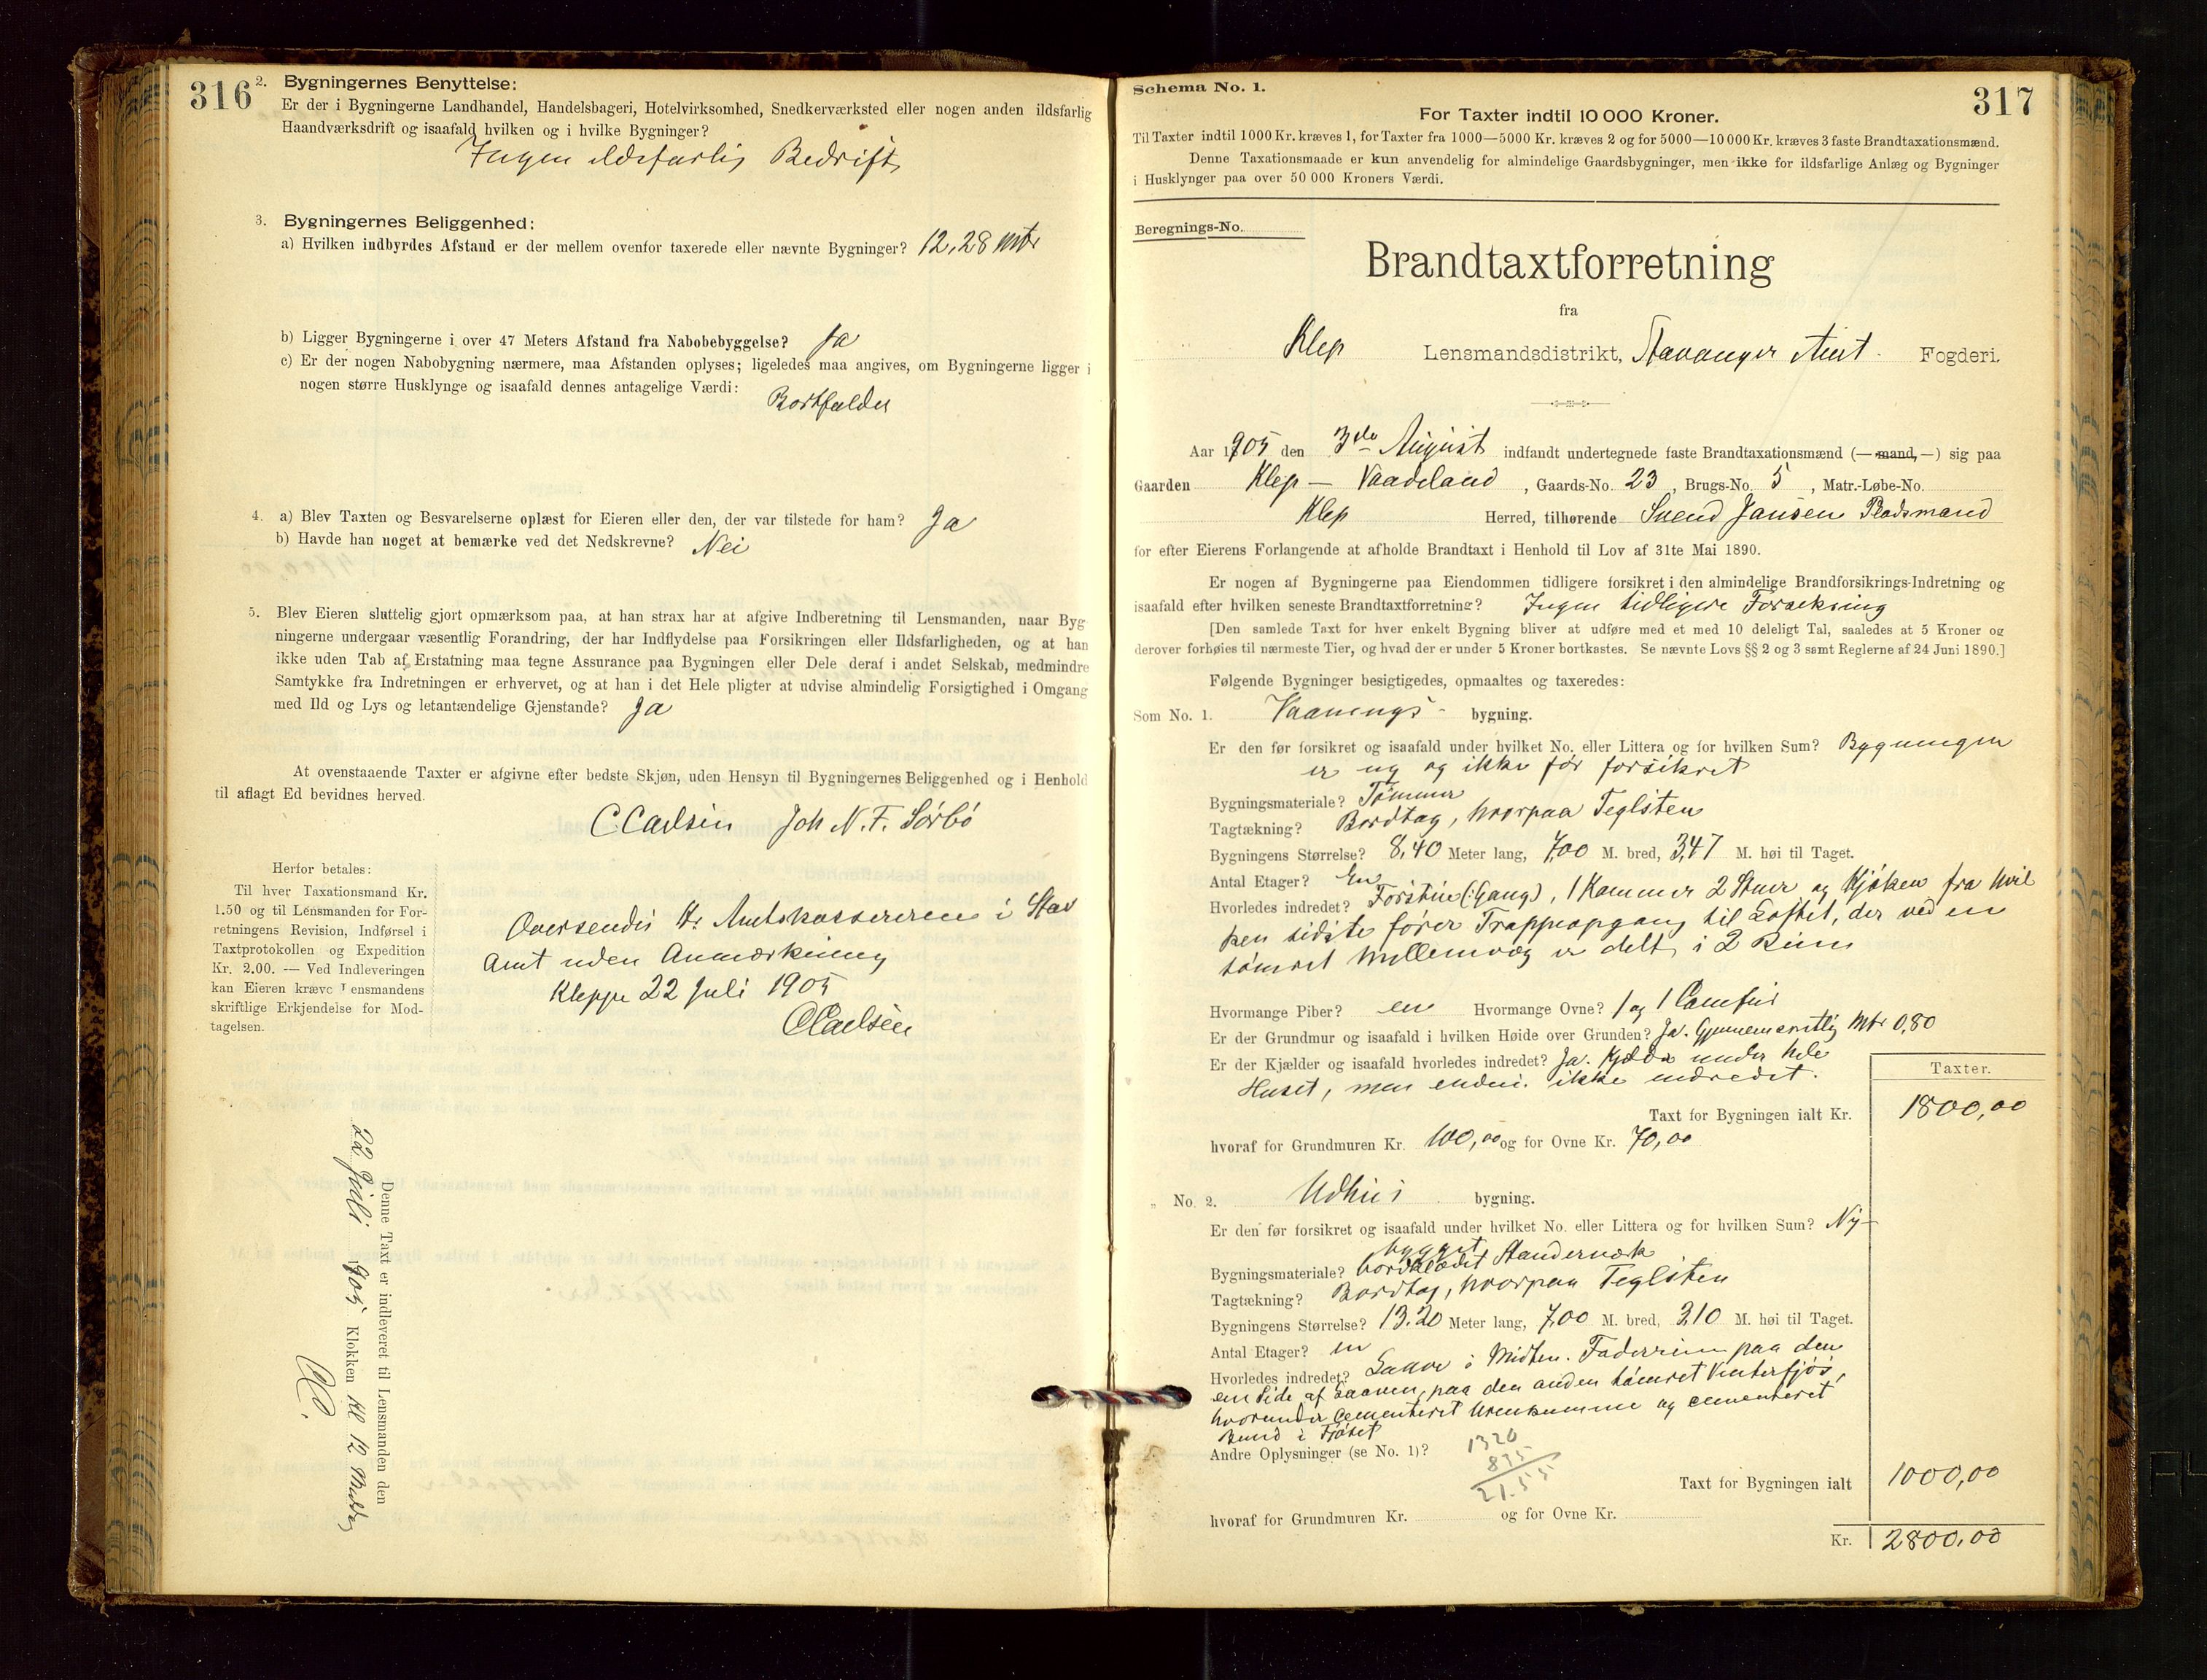 316
2. Bygningernes Benyttelse:
Er der i Bygningerne Landhandel, Handelsbageri, Hotelvirksomhed, Snedkerværksted eller nogen anden ildsfarlig
Haandværksdrift og isaafald hvilken og i hvilke Bygninger?
Ingen ildsfarlig Bedrift
3. Bygningernes Beliggenhed:
a) Hvilken indbyrdes Afstand er der mellem ovenfor taxerede eller nævnte Bygninger? 12,28 mtr
b) Ligger Bygningerne i over 47 Meters Afstand fra Nabobebyggelse? Ja
c) Er der nogen Nabobygning nærmere, maa Afstanden oplyses; ligeledes maa angives, om Bygningerne ligger i
nogen større Husklynge og isaafald dennes antagelige Værdi:
Bortfalder
4. a) Blev Taxten og Besvarelserne oplæst for Eieren eller den, der var tilstede for ham? Ja
b) Havde han noget at bemærke ved det Nedskrevne? Nei
5. Blev Eieren sluttelig gjort opmærksom paa, at han strax har at afgive Indberetning til Lensmanden, naar Byg
ningerne undergaar væsentlig Forandring, der har Indflydelse paa Forsikringen eller Ildsfarligheden, og at han
ikke uden Tab af Erstatning maa tegne Assurance paa Bygningen eller Dele deraf i andet Selskab, medmindre
Samtykke fra Indretningen er erhvervet, og at han i det Hele pligter at udvise almindelig Forsigtighed i Omgang
med Ild og Lys og letantændelige Gjenstande? Ja
At ovenstaaende Taxter er afgivne efter bedste Skjøn, uden Hensyn til Bygningernes Beliggenhed og i Henhold
til aflagt Ed bevidnes herved.
C Carlsen Joh N. F. Sørbö
Herfor betales:
Til hver Taxationsmand Kr.
1.50 og til Lensmanden for For-
retningens Revision, Indførsel i
Taxtprotokollen og Expedition
Kr. 2.00. — Ved Indleveringen
kan Eieren kræve Lensmandens
skriftlige Erkjendelse for Mod-
tagelsen.
Oversendes Hr. Amtskassereren i Stav
Amt uden Anmærkning
Kleppe 22 Juli 1905
C Carlsen
Denne Taxt er indleveret til Lensmanden den
22 Juli 1905 Klokken Kl 12 Middag
CC.
317
Schema No. 1.
For Taxter indtil 10 000 Kroner.
Til Taxter indtil 1000 Kr. kræves 1, for Taxter fra 1000—5000 Kr. kræves 2 og for 5000—10 000 Kr. kræves 3 faste Brandtaxationsmænd.
Denne Taxationsmaade er kun anvendelig for almindelige Gaardsbygninger, men ikke for ildsfarlige Anlæg og Bygninger
i Husklynger paa over 50 000 Kroners Værdi.
Beregnings-No.
Brandtaxtforretning
fra
Klep Lensmandsdistrikt, Stavanger Amt Fogderi.
Aar 1905 den 3die August indfandt undertegnede faste Brandtaxationsmænd (—mand,—) sig paa
Gaarden Klep — Vaadeland, Gaards-No. 23, Brugs-No. 5, Matr.-Løbe-No.
Klep Herred, tilhørende Svend Jansen Pladsmand
for efter Eierens Forlangende at afholde Brandtaxt i Henhold til Lov af 31te Mai 1890.
Er nogen af Bygningerne paa Eiendommen tidligere forsikret i den almindelige Brandforsikrings-Indretning og
isaafald efter hvilken seneste Brandtaxtforretning? Ingen tidligere Forsekring
[Den samlede Taxt for hver enkelt Bygning bliver at udføre med et med 10 deleligt Tal, saaledes at 5 Kroner og
derover forhøies til nærmeste Tier, og hvad der er under 5 Kroner bortkastes. Se nævnte Lovs §§ 2 og 3 samt Reglerne af 24 Juni 1890.]
Følgende Bygninger besigtigedes, opmaaltes og taxeredes:
Som No. 1. Vaanings- bygning.
Er den før forsikret og isaafald under hvilket No. eller Littera og for hvilken Sum? Bygningen
er ny og ikke før forsikret
Bygningsmateriale? Tömmer
Tagtækning? Bordtag, hvorpaa Teglsten
Bygningens Størrelse? 8,40 Meter lang, 7,00 M. bred, 3,47 M. høi til Taget.
Antal Etager? En
Hvorledes indredet? Forstue (:Gang), 1 Kammer 2 Stuer og Kjøken fra hvil
ken sidste fører Trappeopgang til Loftet, der ved en
tömret Mellemvæg er delt i 2 Rum
Hvormange Piber? en Hvormange Ovne? 1 og 1 Comfur
Er der Grundmur og isaafald i hvilken Høide over Grunden? Ja. Gjennemsnitlig Mtr 0,80
Er der Kjælder og isaafald hvorledes indredet? Ja. Kjelder under hele
Huset, men endnu ikke indredet.
Taxter.
Taxt for Bygningen ialt Kr. 1800,00
hvoraf for Grundmuren Kr. 100,00 og for Ovne Kr. 70,00
„ No. 2. Udhus bygning.
Er den før forsikret og isaafald under hvilket No. eller Littera og for hvilken Sum? Ny-
bygget
Bygningsmateriale? bordklædt Standerværk
Tagtækning? Bordtag, hvorpaa Teglsten
Bygningens Størrelse? 13.20 Meter lang, 7,00 M. bred, 3,10 M. høi til Taget.
Antal Etager? en
Hvorledes indredet? Laave i Midten. Foderrum paa den
ene Side af Laaven, paa den anden tömret Vinterfjøs,
hvorunder cementeret Urenkumme og cementeret
Bund i Fjöset
Andre Oplysninger (se No. 1)?
1320
21.55
Taxt for Bygningen ialt 1000,00
hvoraf for Grundmuren Kr. og for Ovne Kr.
Kr. 2800,00